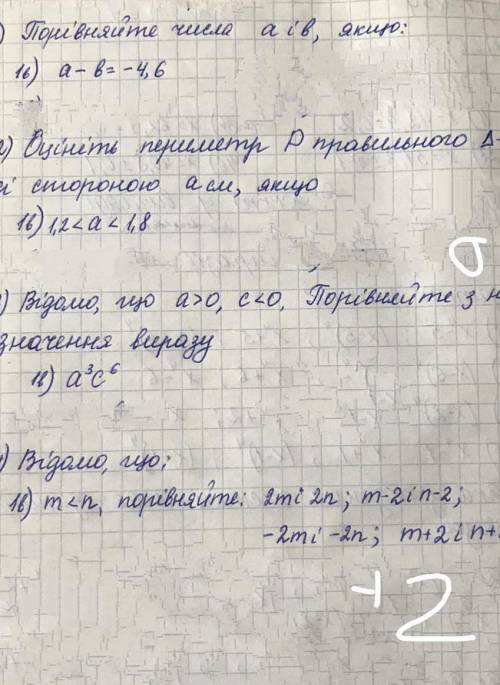 ) Порівняйте числа a і b, якщо:
1б) a - b = -4,6
) Оцініть периметр P правильного Δ-
зі стороною a см, якщо
1б) 1,2 < a < 1,8
0
) Відомо, що a>0, c<0. Порівняйте з н
значення виразу
1б) a³c⁶
) Відомо, що:
1б) m < n, порівняйте: 2m і 2n; m-2 і n-2;
-2m і -2n; m+2 і n+
+2